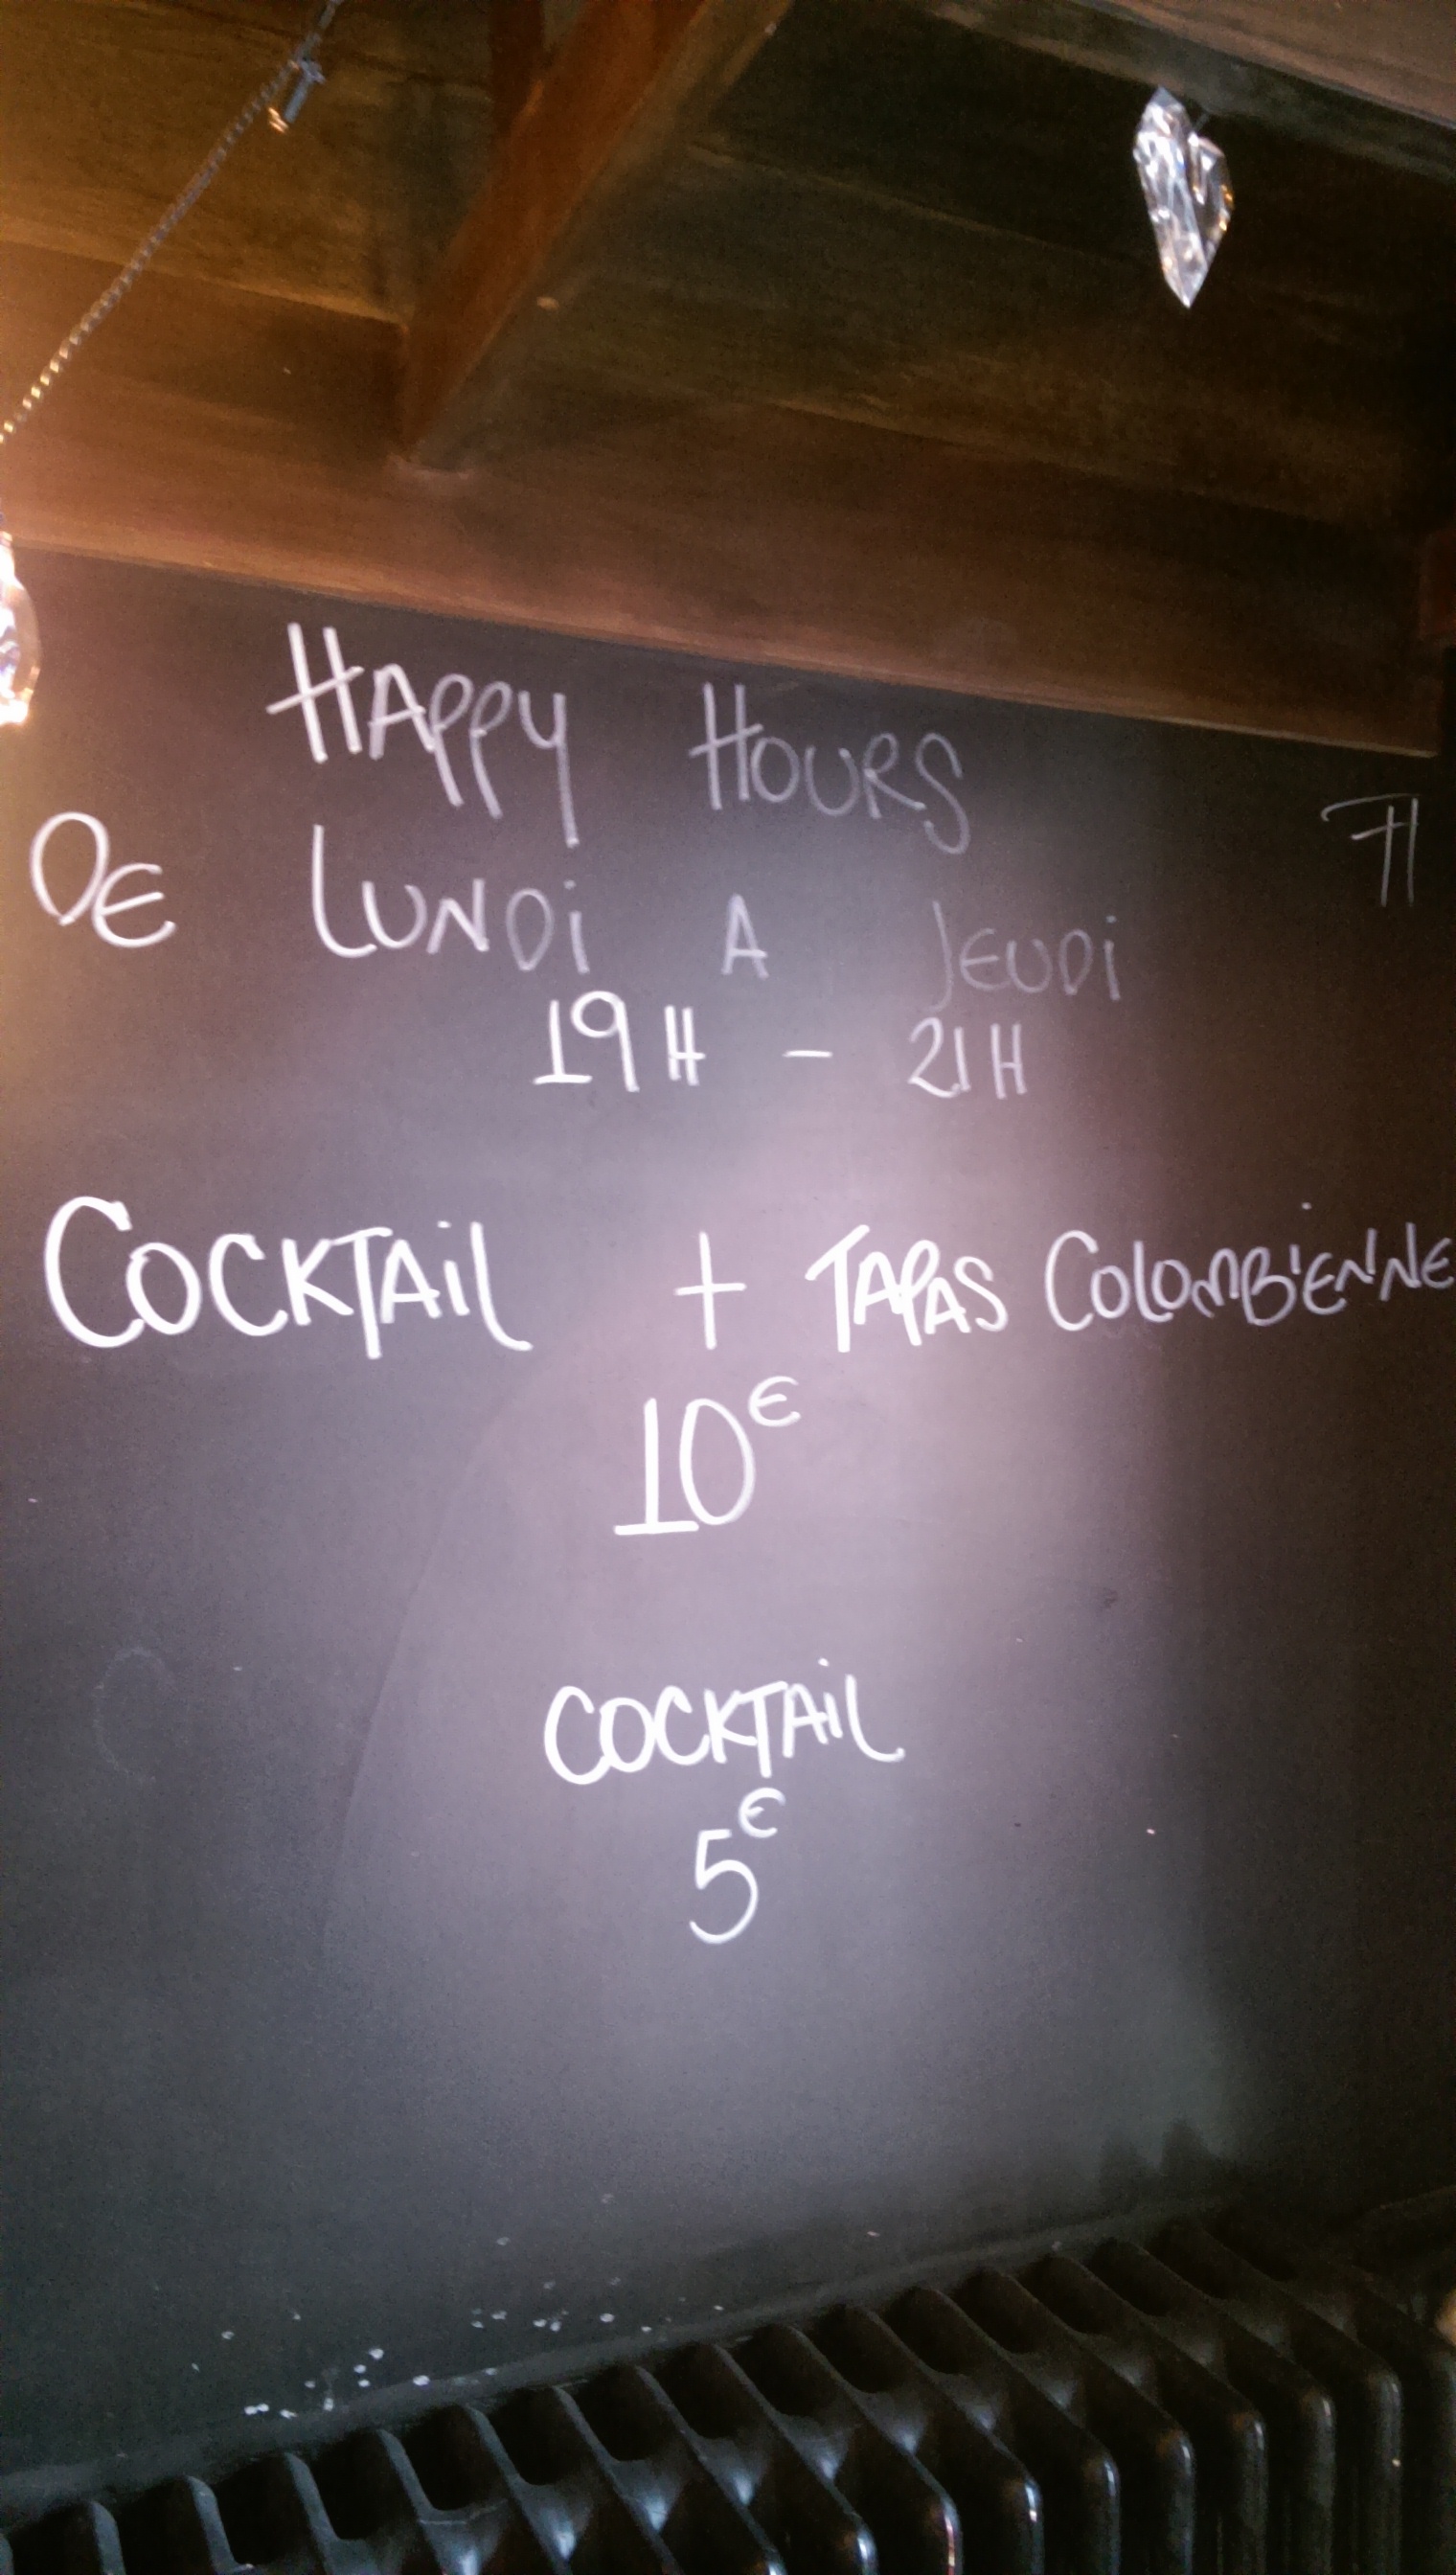 HAPPY HOURS
DE LUNDi A JEUDi
19H - 21H
COCKTAiL + TAPAS COLOMBiENNE
10€
COCKTAiL
5€